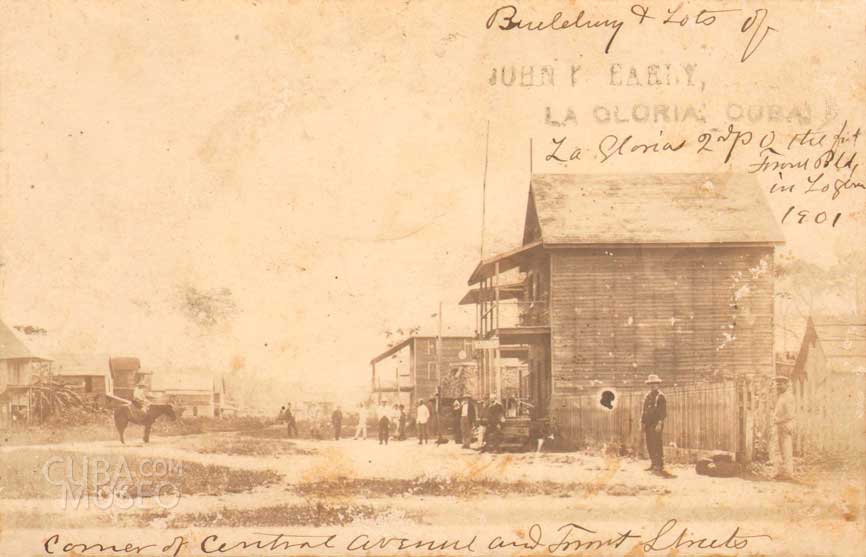 Buildling & Lots of
JOHN F EARLY,
LA GLORIA, CUBA
La Gloria 2nd P O the
Front Bld,
in
1901
CUBA.COM
MUSEO
Corner of Central Avenue and Front Streets